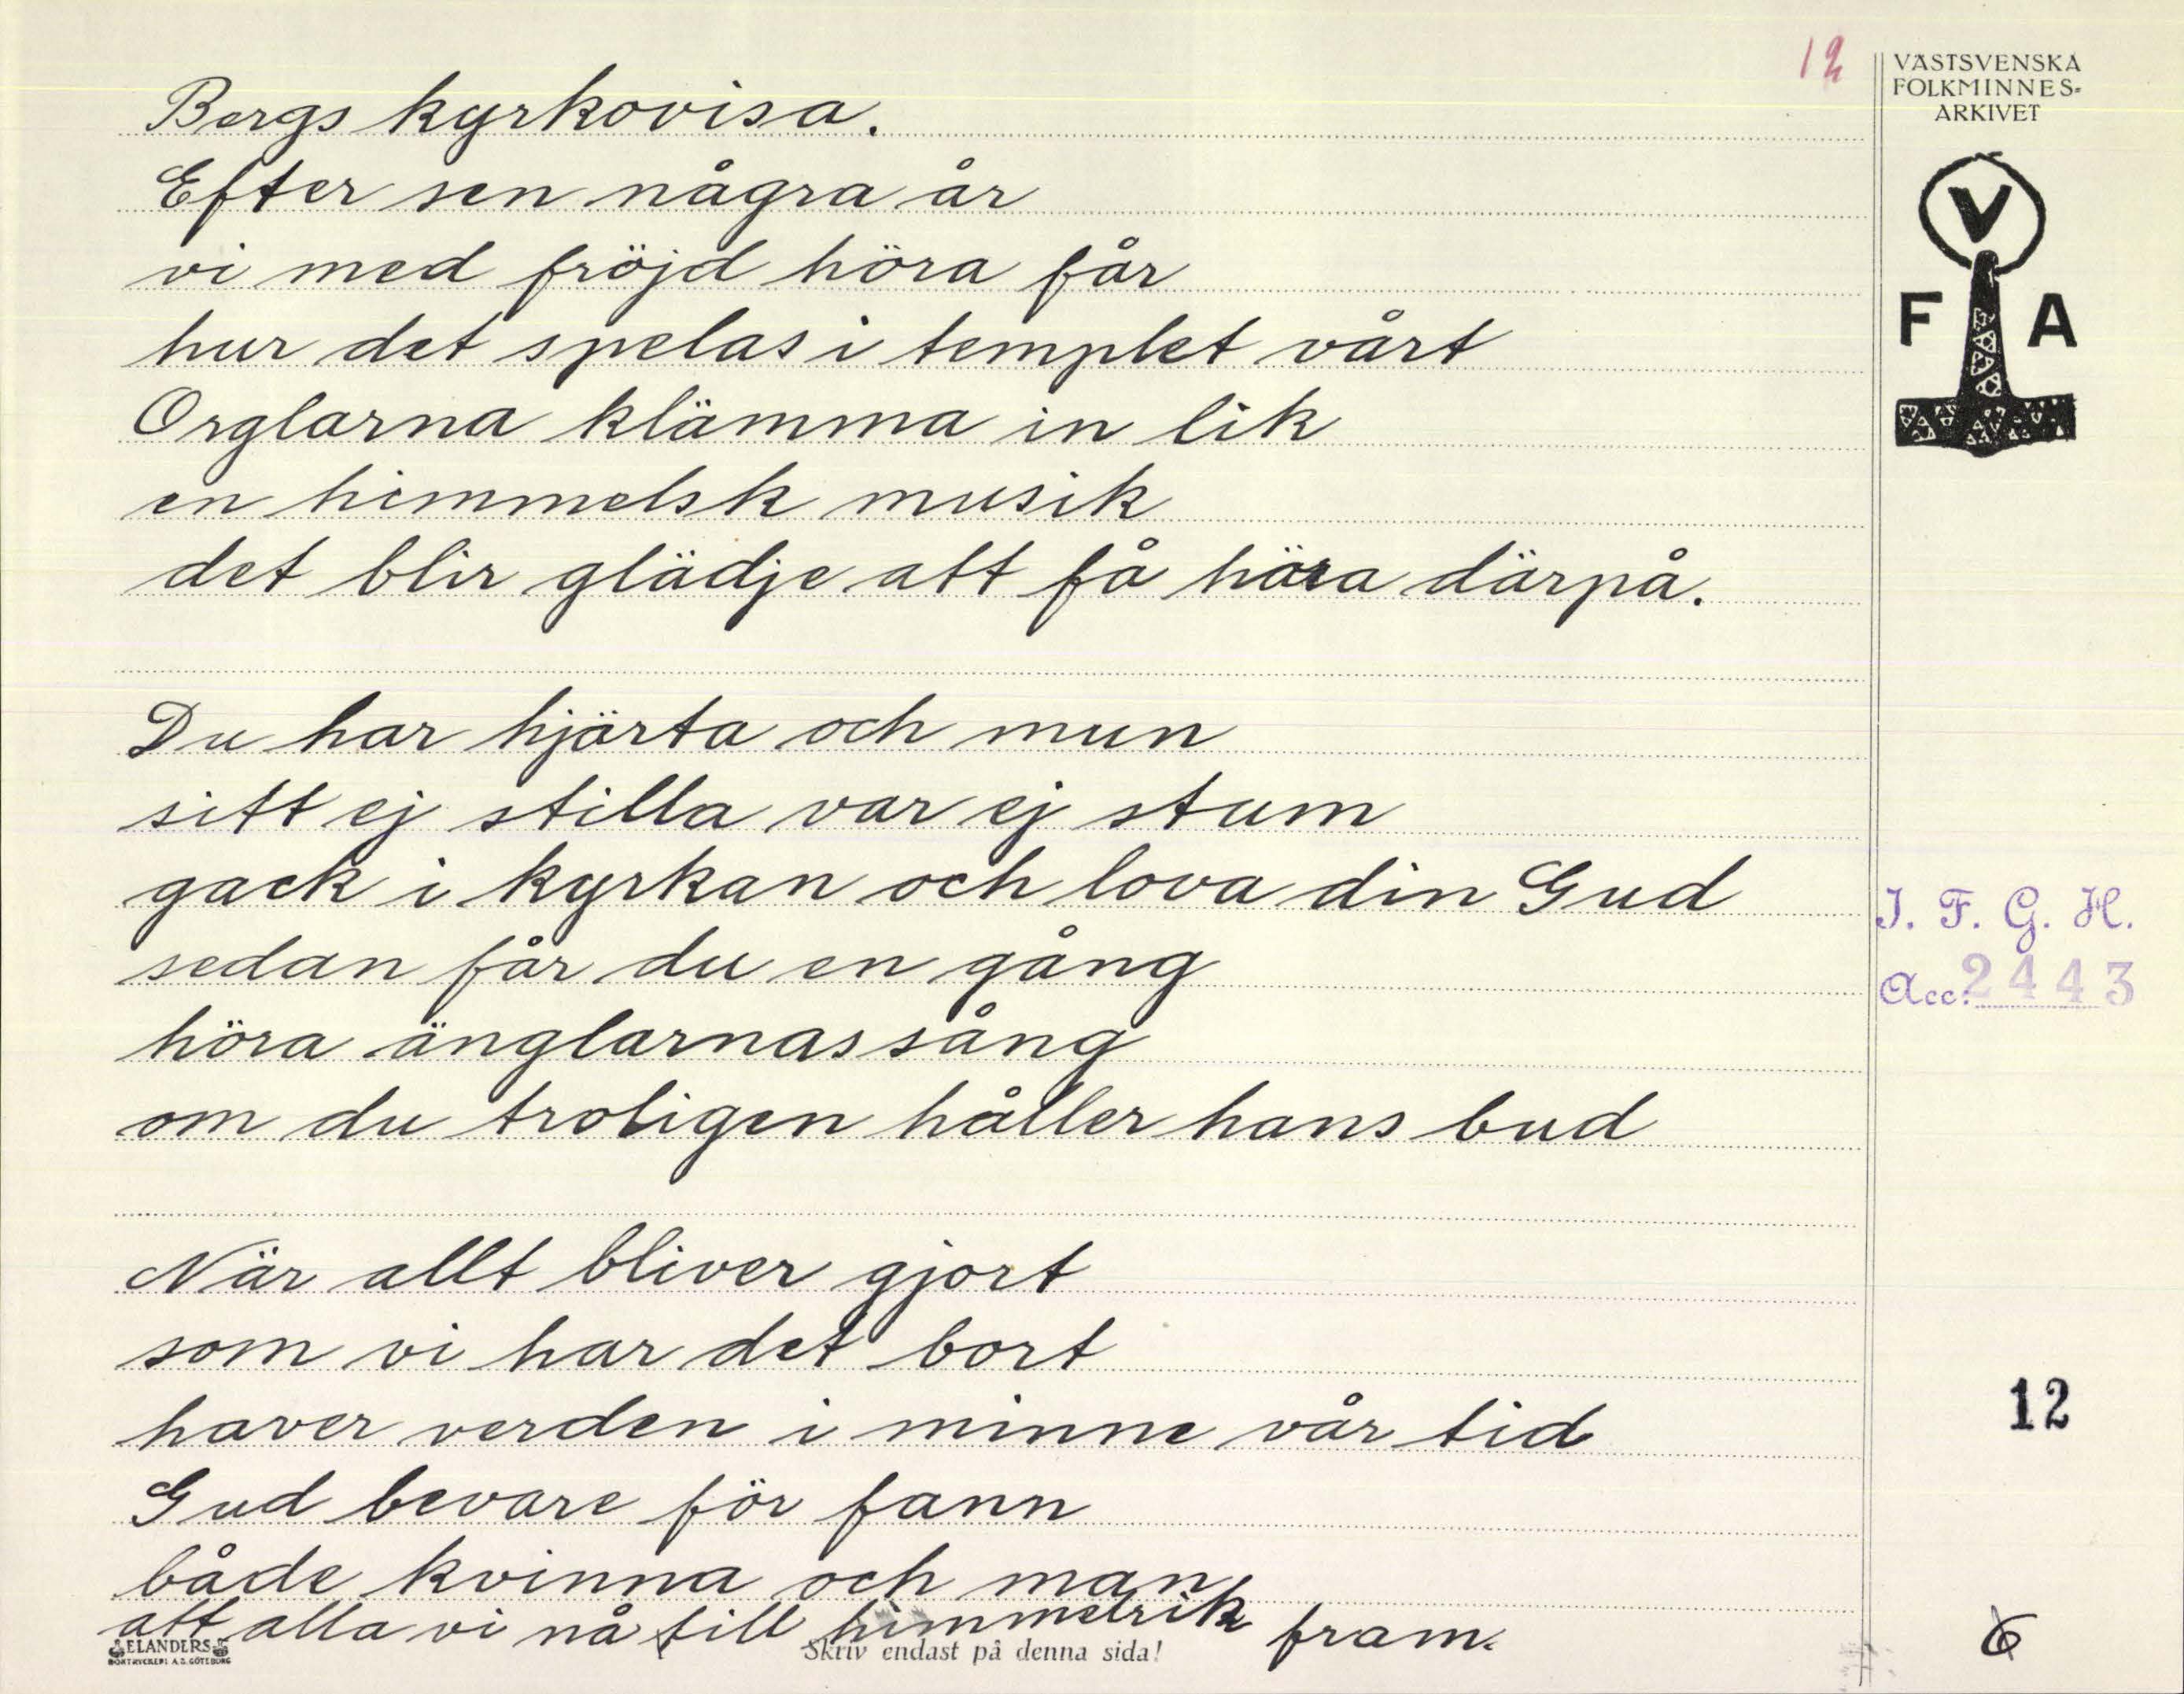 12
VÄSTSVENSKA
FOLKMINNES=
ARKIVET
V
F A
Bergs kyrkovisa.
Efter sen några år
vi med fröjd höra får
hur det spelas i templet vårt
Orglarna klämma in lik
en himmelsk musik
det blir glädje att få höra därpå.
Du har hjärta och mun
sitt ej stilla var ej stum
gack i kyrkan och lova din Gud
sedan får du en gång
höra änglarnas sång
om du troligen håller hans bud
När allt bliver gjort
som vi har det bort
haver verden i minne vår tid
Gud bevare för fann
både kvinna och man
att alla vi nå till himmelrik fram.
I. F. G. H.
Acc. 2443
12
6
ELANDERS
BOKTRYCKERI A.B. GÖTEBORG
Skriv endast på denna sida!